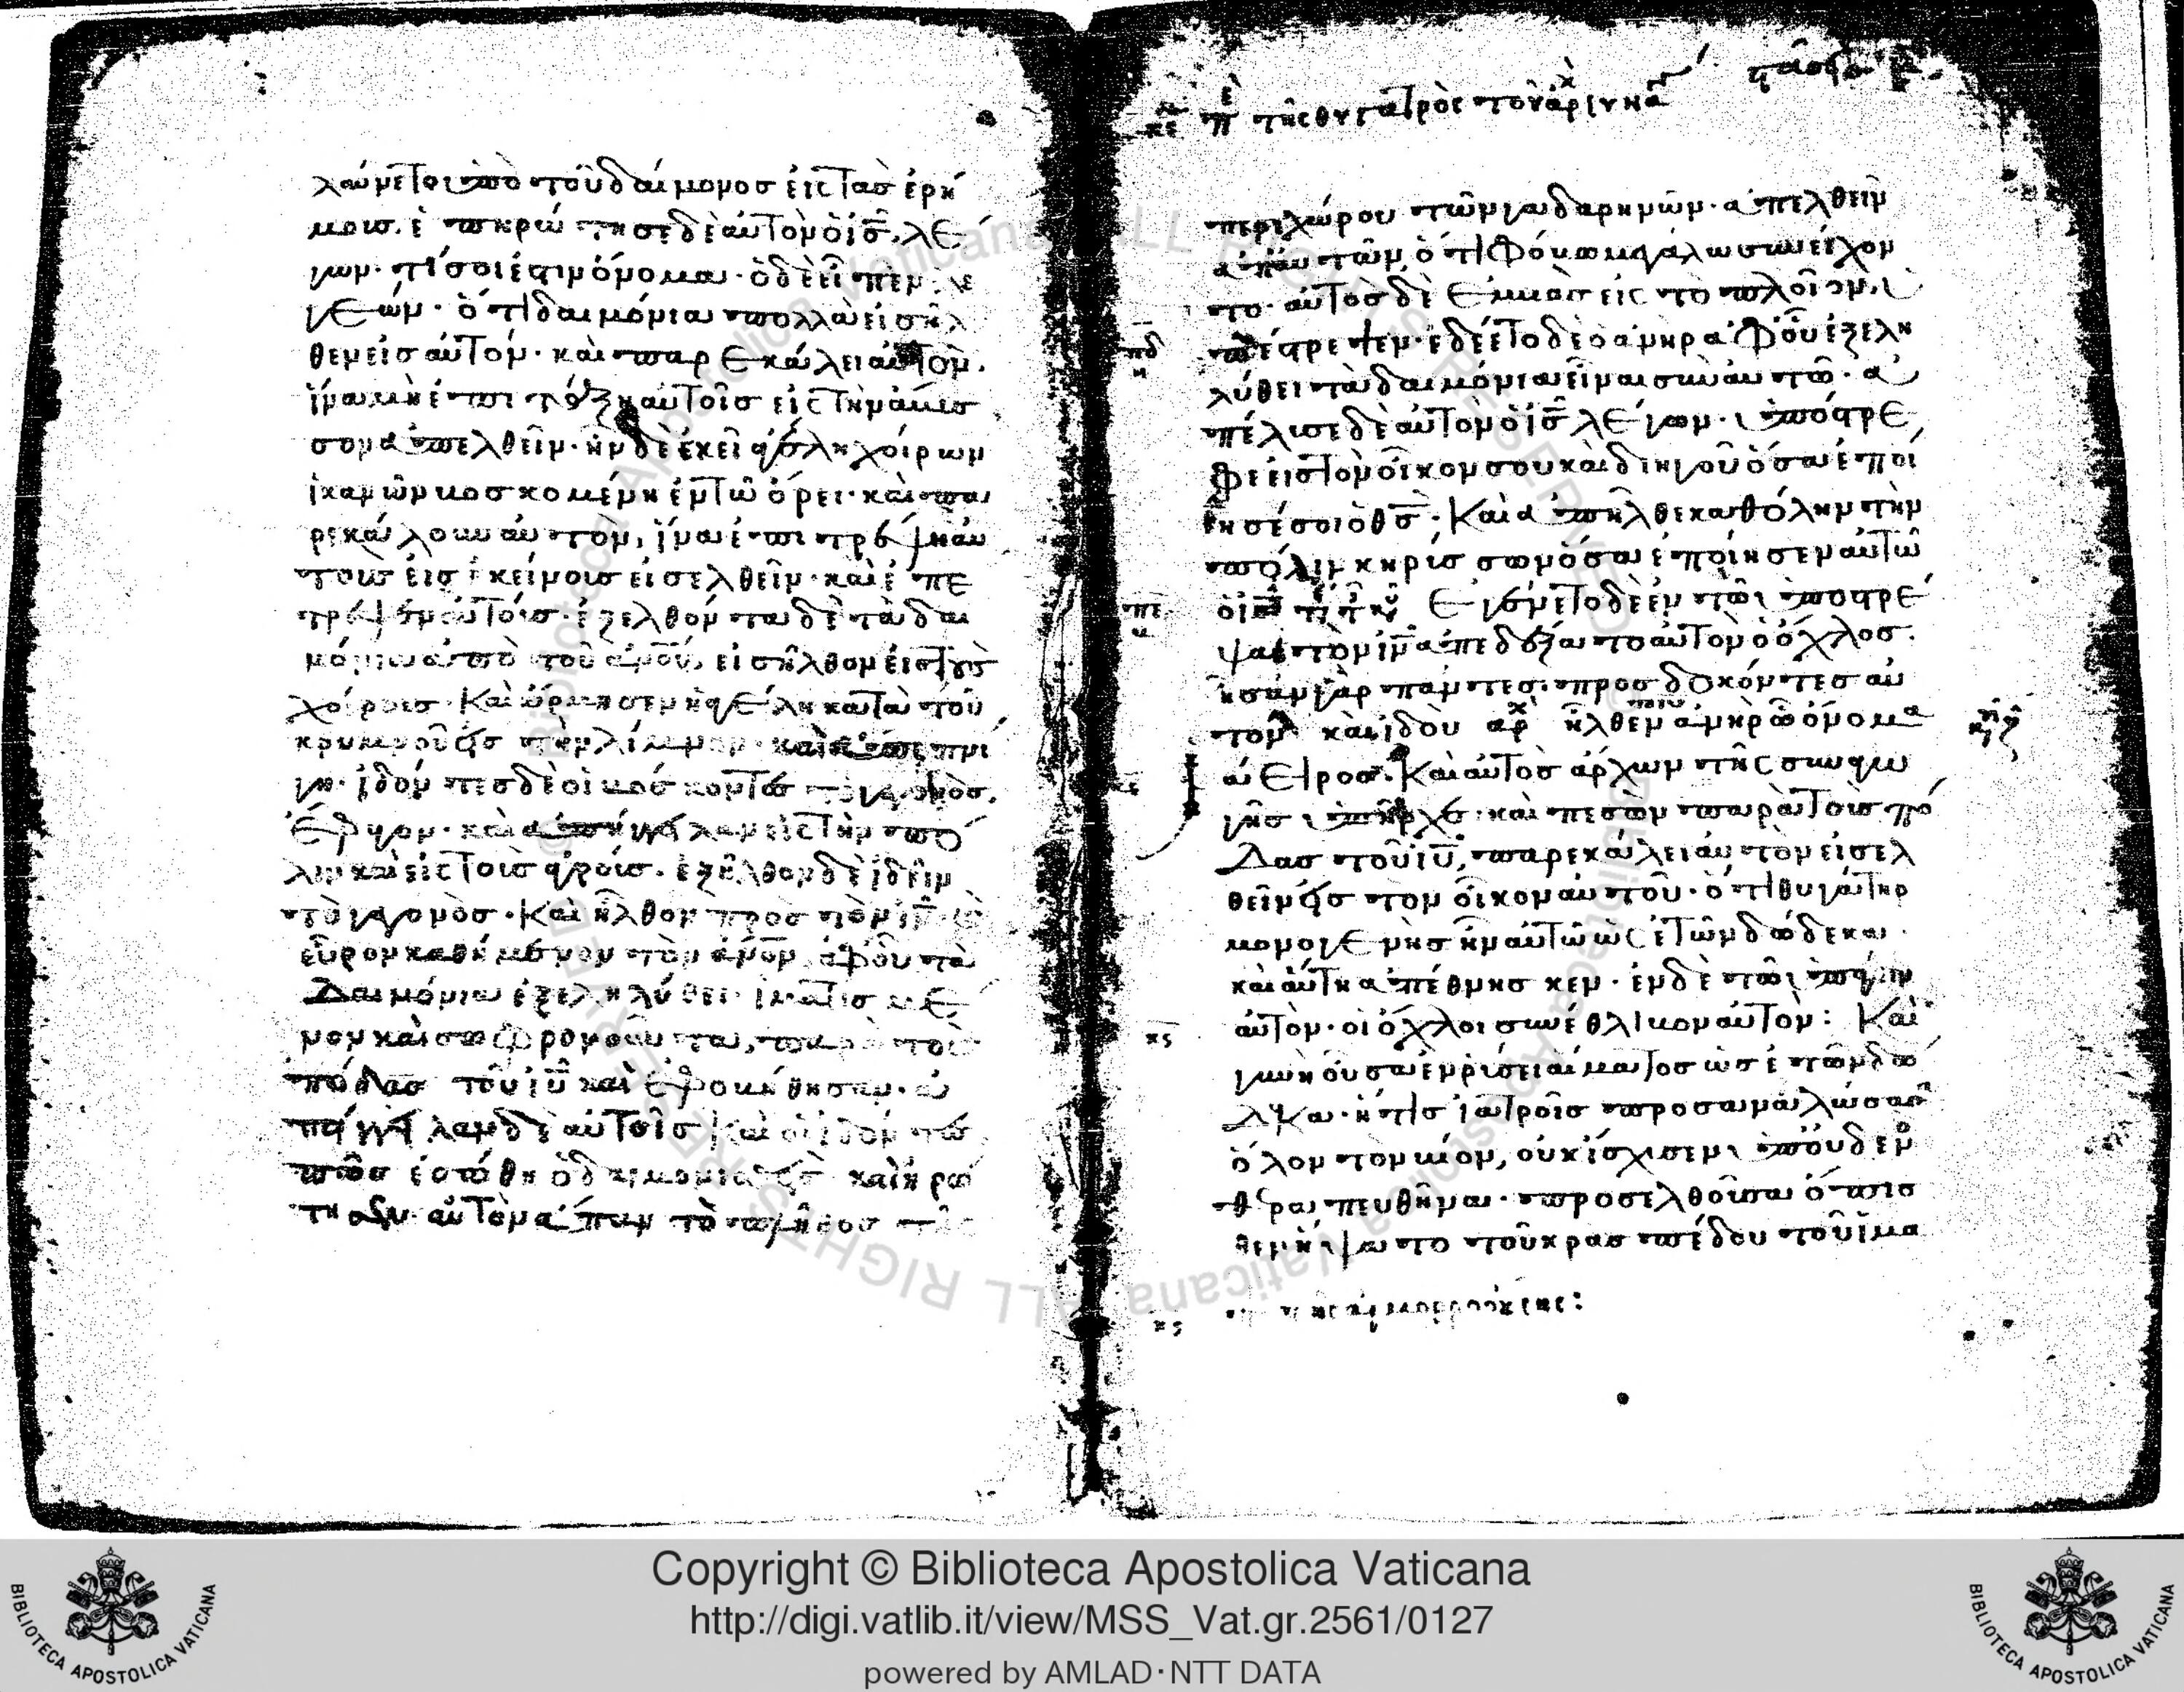 λαύνετο ὑπὸ τοῦ δαίμονος εἰς τὰς ἐρή
μοις. ἐπηρώτησε δὲ αὐτὸν ὁ ι̅ς̅. λέ
γων. τί σοι ἐστὶν ὄνομα. ὁ δὲ εἶπεν. λε
γεών. ὅτι δαιμόνια πολλὰ εἰσῆλ
θεν εἰς αὐτόν. καὶ παρεκάλει αὐτὸν.
ἵνα μὴ ἐπιτάξη αὐτοῖς εἰς τὴν ἄβυσ
σον ἀπελθεῖν. ἦν δὲ ἐκεῖ ἀγέλη χοίρων
ἱκανῶν βοσκομένη ἐν τῶ ὄρει. καὶ πα
ρεκάλουν αὐτὸν, ἵνα ἐπιτρέψη αὐ
τοις εἰς ἐκείνοις εἰσελθεῖν. καὶ ἐπέ
τρεψεν αὐτοῖς. ἐξελθόντα δὲ τὰ δαι
μόνια ἀπὸ τοῦ α̅ν̅ο̅υ̅, εἰσῆλθον εἰς τοὺς
χοίροις. Καὶ ὥρμησεν ἡ ἀγέλη κατὰ τοῦ
κρημνοῦ εἰς τὴν λίμνην. καὶ ἀπεπνί
γη. ἰδόντες δὲ οἱ βόσκοντες τὸ γεγονὸς,
ἔφυγον. καὶ ἀπήγγειλαν εἰς τὴν πό
λιν καὶ εἰς τοις ἀγρούς. ἐξῆλθον δὲ ἰδεῖν
τὸ γεγονὸς. Καὶ ἦλθον πρὸς τὸν ι̅ν̅. καὶ
εὗρον καθήμενον τὸν α̅ν̅ο̅ν̅, ἀφ' οὗ τὰ
Δαιμόνια ἐξεληλύθει. ἱματισμέ
νον καὶ σωφρονοῦντα, παρὰ τοὺς
πόδας τοῦ ι̅υ̅ καὶ ἐφοβήθησαν. ἀ
πήγγειλαν δὲ αὐτοῖς Καὶ οἱ ἰδόντες
πῶς ἐσώθη ὁ δαιμονισθεὶς καὶ ἠρώ
τησαν αὐτὸν ἅπαν τὸ πλῆθος τῆς
κε πε τῆς θυγατρὸς τοῦ ἀρχισυνα
περιχώρου τῶν γαδαρηνῶν. ἀπελθεῖν
ἀπ' αὐτῶν, ὅτι φόβω μεγάλω συνείχον
το. αὐτὸς δὲ ἐμβὰς εἰς τὸ πλοῖον, ὑ
πέστρεψεν. ἐδέετο δὲ ὁ ἀνὴρ ἀφ' οὗ ἐξελη
λύθει τὰ δαιμόνια εἶναι σὺν αὐτῶ. ἀ
πέλυσε δὲ αὐτὸν ὁ ι̅ς̅ λέγων. ὑπόστρε
φε εἰς τὸν οἶκον σου καὶ διηγοῦ ὅσα ἐποί
ησέ σοι ὁ θ̅ς̅. Καὶ ἀπῆλθε καθ' ὅλην τὴν
πόλιν κηρίσσων ὅσα ἐποίησεν αὐτῶ
ὁ ι̅ς̅ Ἐγένετο δὲ ἐν τῶ ὑποστρέ
ψαι τὸν ι̅ν̅ ἀπεδέξατο αὐτὸν ὁ ὄχλος.
ἦσαν γὰρ πάντες προσδοκόντες αὐ
τον καὶ ἰδοὺ ἦλθεν ἀνὴρ ὧ ὄνομα
ἰάειρος. Καὶ αὐτὸς ἄρχων τῆς συναγω
γῆς ὑπῆρχε. καὶ πεσὼν παρὰ τοὺς πό
Δας τοῦ ι̅υ̅, παρεκάλει αὐτὸν εἰσελ
θεῖν εἰς τον οἶκον αὐτοῦ. ὅτι θυγάτηρ
μονογενὴς ἦν αὐτῶ ὡς ἐτῶν δώδεκα.
καὶ αὕτη ἀπέθνησκεν. ἐν δὲ τῶ ὑπάγειν
αὐτὸν. οἱ ὄχλοι συνέθλιβον αὐτὸν: Καὶ
γυνὴ οὖσα ἐν ρύσει αἵματος ὡς ἐτῶν δώ
δεκα. ἥτις ἰατροῖς προσαναλώσασα
ὅλον τὸν βίον, οὐκ ἴσχυσεν ὑπ' οὐδενὸς
θεραπευθῆναι. προσελθοῦσα ὄπισ
θεν ἥψατο τοῦ κρασπέδου τοῦ ἱμα
κϛ τῆς αἱμορροούσης: